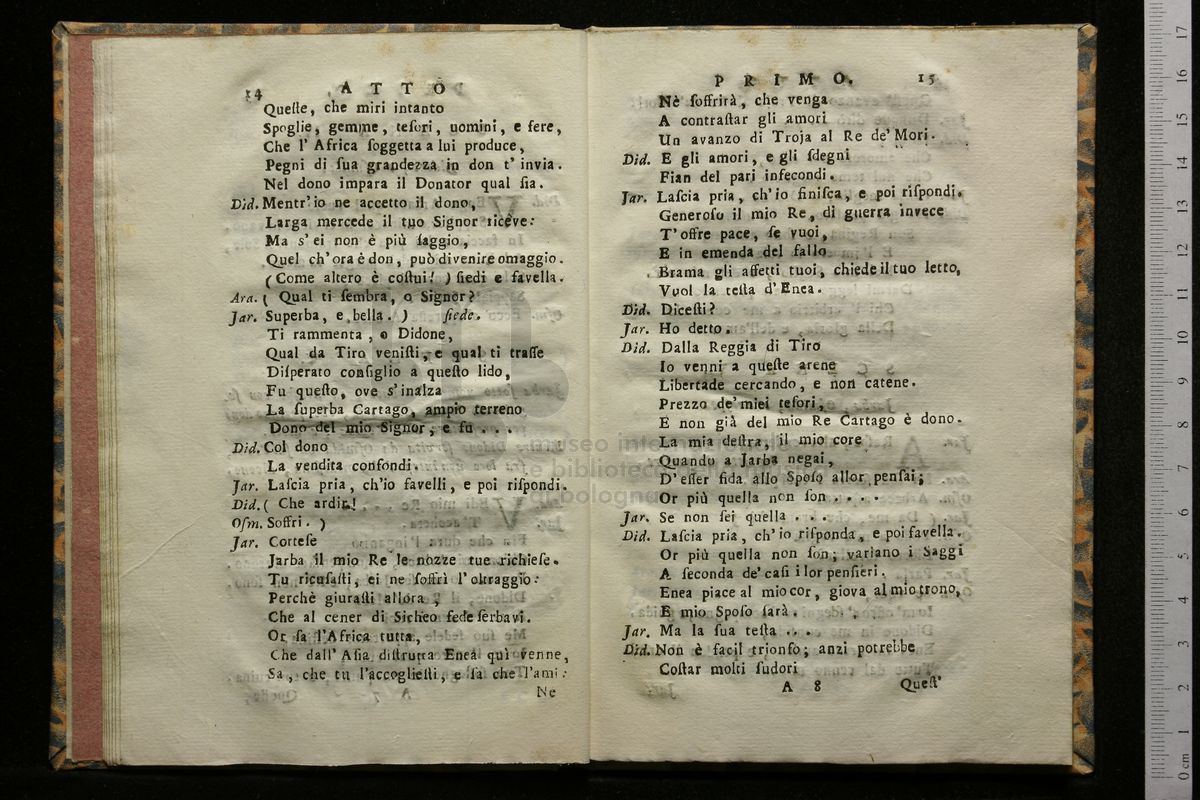 14
ATTO
Queſte, che miri intanto
Spoglie, gemme, teſori, uomini, e fere,
Che l' Africa ſoggetta a lui produce,
Pegni di ſua grandezza in don t' invia.
Nel dono impara il Donator qual ſia.
Did. Mentr'io ne accetto il dono,
Larga mercede il tuo Signor riceve:
Ma s' ei non è più ſaggio,
Quel ch' ora è don, può divenire omaggio.
( Come altero è coſtui! ) ſiedi e favella.
Ara. ( Qual ti ſembra, o Signor?
Jar. Superba, e bella. ) ſiede.
Ti rammenta, o Didone,
Qual da Tiro veniſti, e qual ti traſſe
Diſperato conſiglio a queſto lido,
Fu queſto, ove s'inalza
La ſuperba Cartago, ampio terreno
Dono del mio Signor, e fu . . .
Did. Col dono
La vendita confondi.
Jar. Laſcia pria, ch'io favelli, e poi riſpondi.
Did. ( Che ardir!
Oſm. Soffri. )
Jar. Corteſe
Jarba il mio Re le nozze tue richieſe.
Tu ricuſaſti, ei ne ſoffrì l' oltraggio:
Perchè giuraſti allora,
Che al cener di Sicheo fede ſerbavi.
Or ſa l'Africa tutta,
Che dall' Aſia diſtrutta Enea quì venne,
Sa, che tu l'accoglieſti, e ſa che l'ami:
Ne
PRIMO.
15
Nè ſoffrirà, che venga
A contraſtar gli amori
Un avanzo di Troja al Re de' Mori.
Did. E gli amori, e gli ſdegni
Fian del pari infecondi.
Jar. Laſcia pria, ch'io finiſca, e poi riſpondi.
Generoſo il mio Re, di guerra invece
T' offre pace, ſe vuoi,
E in emenda del fallo
Brama gli affetti tuoi, chiede il tuo letto,
Vuol la teſta d' Enea.
Did. Diceſti?
Jar. Ho detto.
Did. Dalla Reggia di Tiro
Io venni a queſte arene
Libertade cercando, e non catene.
Prezzo de' miei teſori,
E non già del mio Re Cartago è dono.
La mia deſtra, il mio core
Quando a Jarba negai,
D' eſſer fida allo Spoſo allor penſai;
Or più quella non ſon . . . .
Jar. Se non ſei quella . . .
Did. Laſcia pria, ch' io riſponda, e poi favella.
Or più quella non ſon; variano i Saggi
A ſeconda de' caſi i lor penſieri.
Enea piace al mio cor, giova al mio trono,
E mio Spoſo ſarà.
Jar. Ma la ſua teſta . . .
Did. Non è facil trionfo; anzi potrebbe
Coſtar molti ſudori
A 8
Queſt'